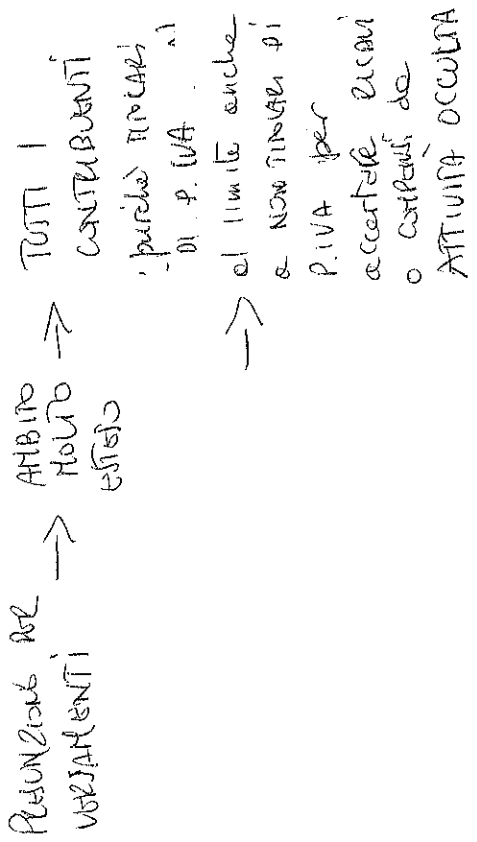 PRESUNZIONE PER
VERSAMENTI
→
AMBITO
MOLTO
ESTESO
→
TUTTI I
CONTRIBUENTI
purché TITOLARI
DI P. IVA
→
al limite anche
a NON TITOLARI DI
P. IVA per
accertare RICAVI
o COMPENSI da
ATTIVITÀ OCCULTA